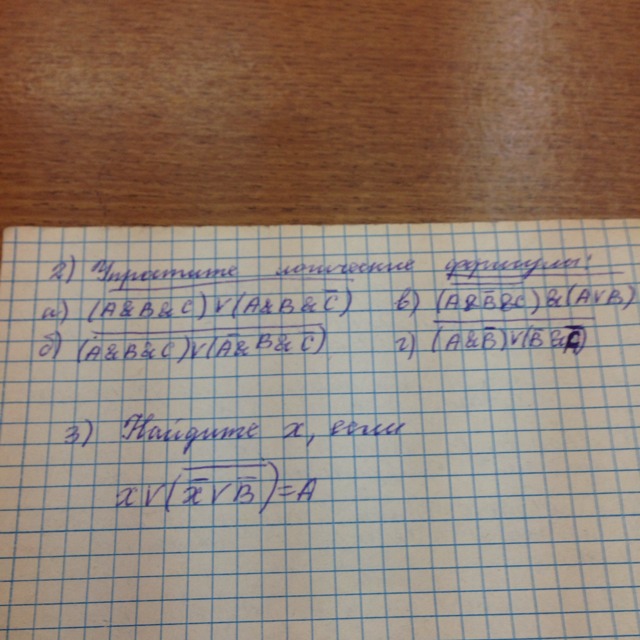 2) Упростите логические формулы:
а) (A&B&C)V(A&B&C̅) в) (A&B̅&C)&(AVB)
б) (A&B&C)V(A̅&B̅&C̅) г) (A&B̅)V(B̅&A̅)
3) Найдите x, если
xV(x̅VB̅)=A